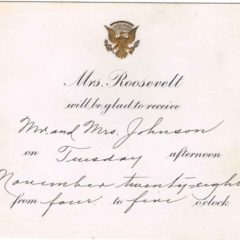 Mrs. Roosevelt
will be glad to receive
Mr. and Mrs. Johnson
on Tuesday afternoon
November twenty-eight
from four to five o'clock